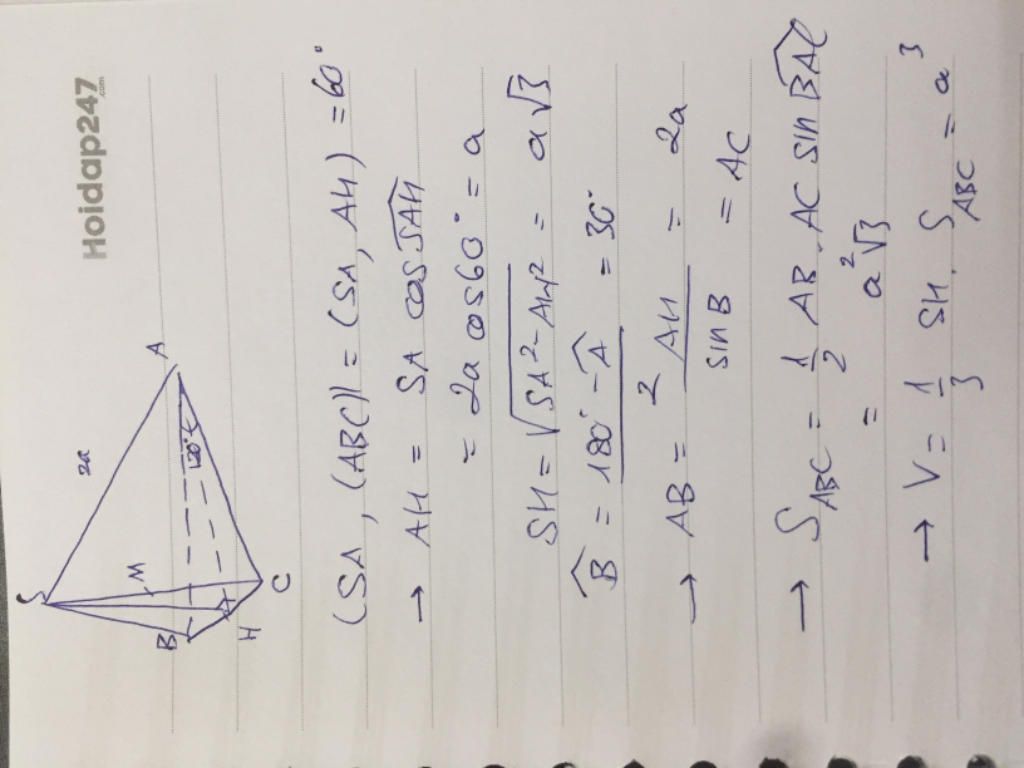 Hoidap247
.com
S
2a
A
M
120°
B
H
C
(SA, (ABC)) = (SA, AH) = 60°
→ AH = SA cos SAH
= 2a cos60° = a
SH = √SA² - AH² = a√3
B = 180° - A / 2 = 30°
→ AB = AH / sin B = 2a = AC
→ S ABC = 1/2 AB . AC sin BAC
= a²√3
→ V = 1/3 SH . S ABC = a³